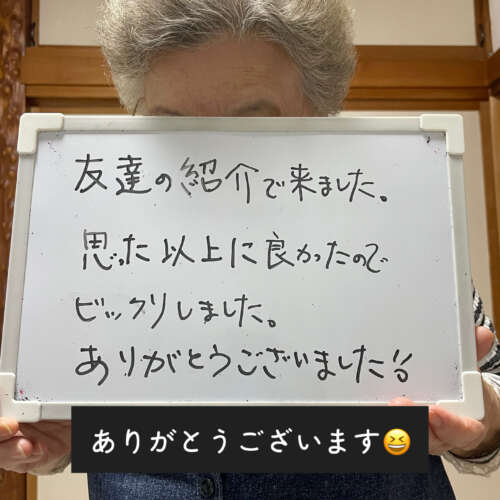 友達の紹介で来ました。
思った以上に良かったので
ビックリしました。
ありがとうございました!!
ありがとうございます😆